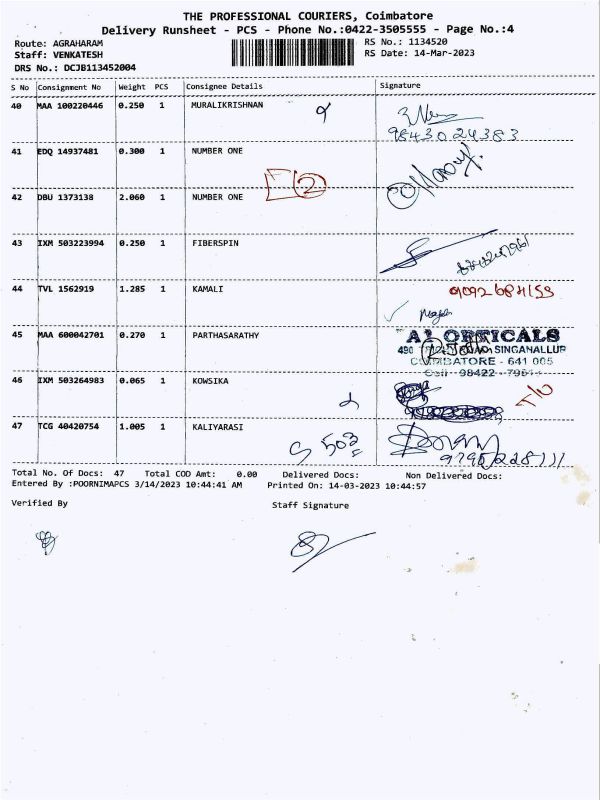 THE PROFESSIONAL COURIERS, Coimbatore
Delivery Runsheet - PCS - Phone No.:0422-3505555 - Page No.:4
Route: AGRAHARAM
RS No.: 1134520
Staff: VENKATESH
RS Date: 14-Mar-2023
DRS No.: DCJB113452004
S No Consignment No Weight PCS Consignee Details Signature
40 MAA 100220446 0.250 1 MURALIKRISHNAN
9843024383
41 EDQ 14937481 0.300 1 NUMBER ONE
2
42 DBU 1373138 2.060 1 NUMBER ONE
43 IXM 503223994 0.250 1 FIBERSPIN
44 TVL 1562919 1.285 1 KAMALI
45 MAA 600042701 0.270 1 PARTHASARATHY
A1 OPTICALS
SINGANALLUR
COIMBATORE - 641 005
Cell 98422
46 IXM 503264983 0.065 1 KOWSIKA
47 TCG 40420754 1.005 1 KALIYARASI
503
Total No. Of Docs: 47 Total COD Amt: 0.00 Delivered Docs: Non Delivered Docs:
Entered By :POORNIMAPCS 3/14/2023 10:44:41 AM Printed On: 14-03-2023 10:44:57
Verified By
Staff Signature